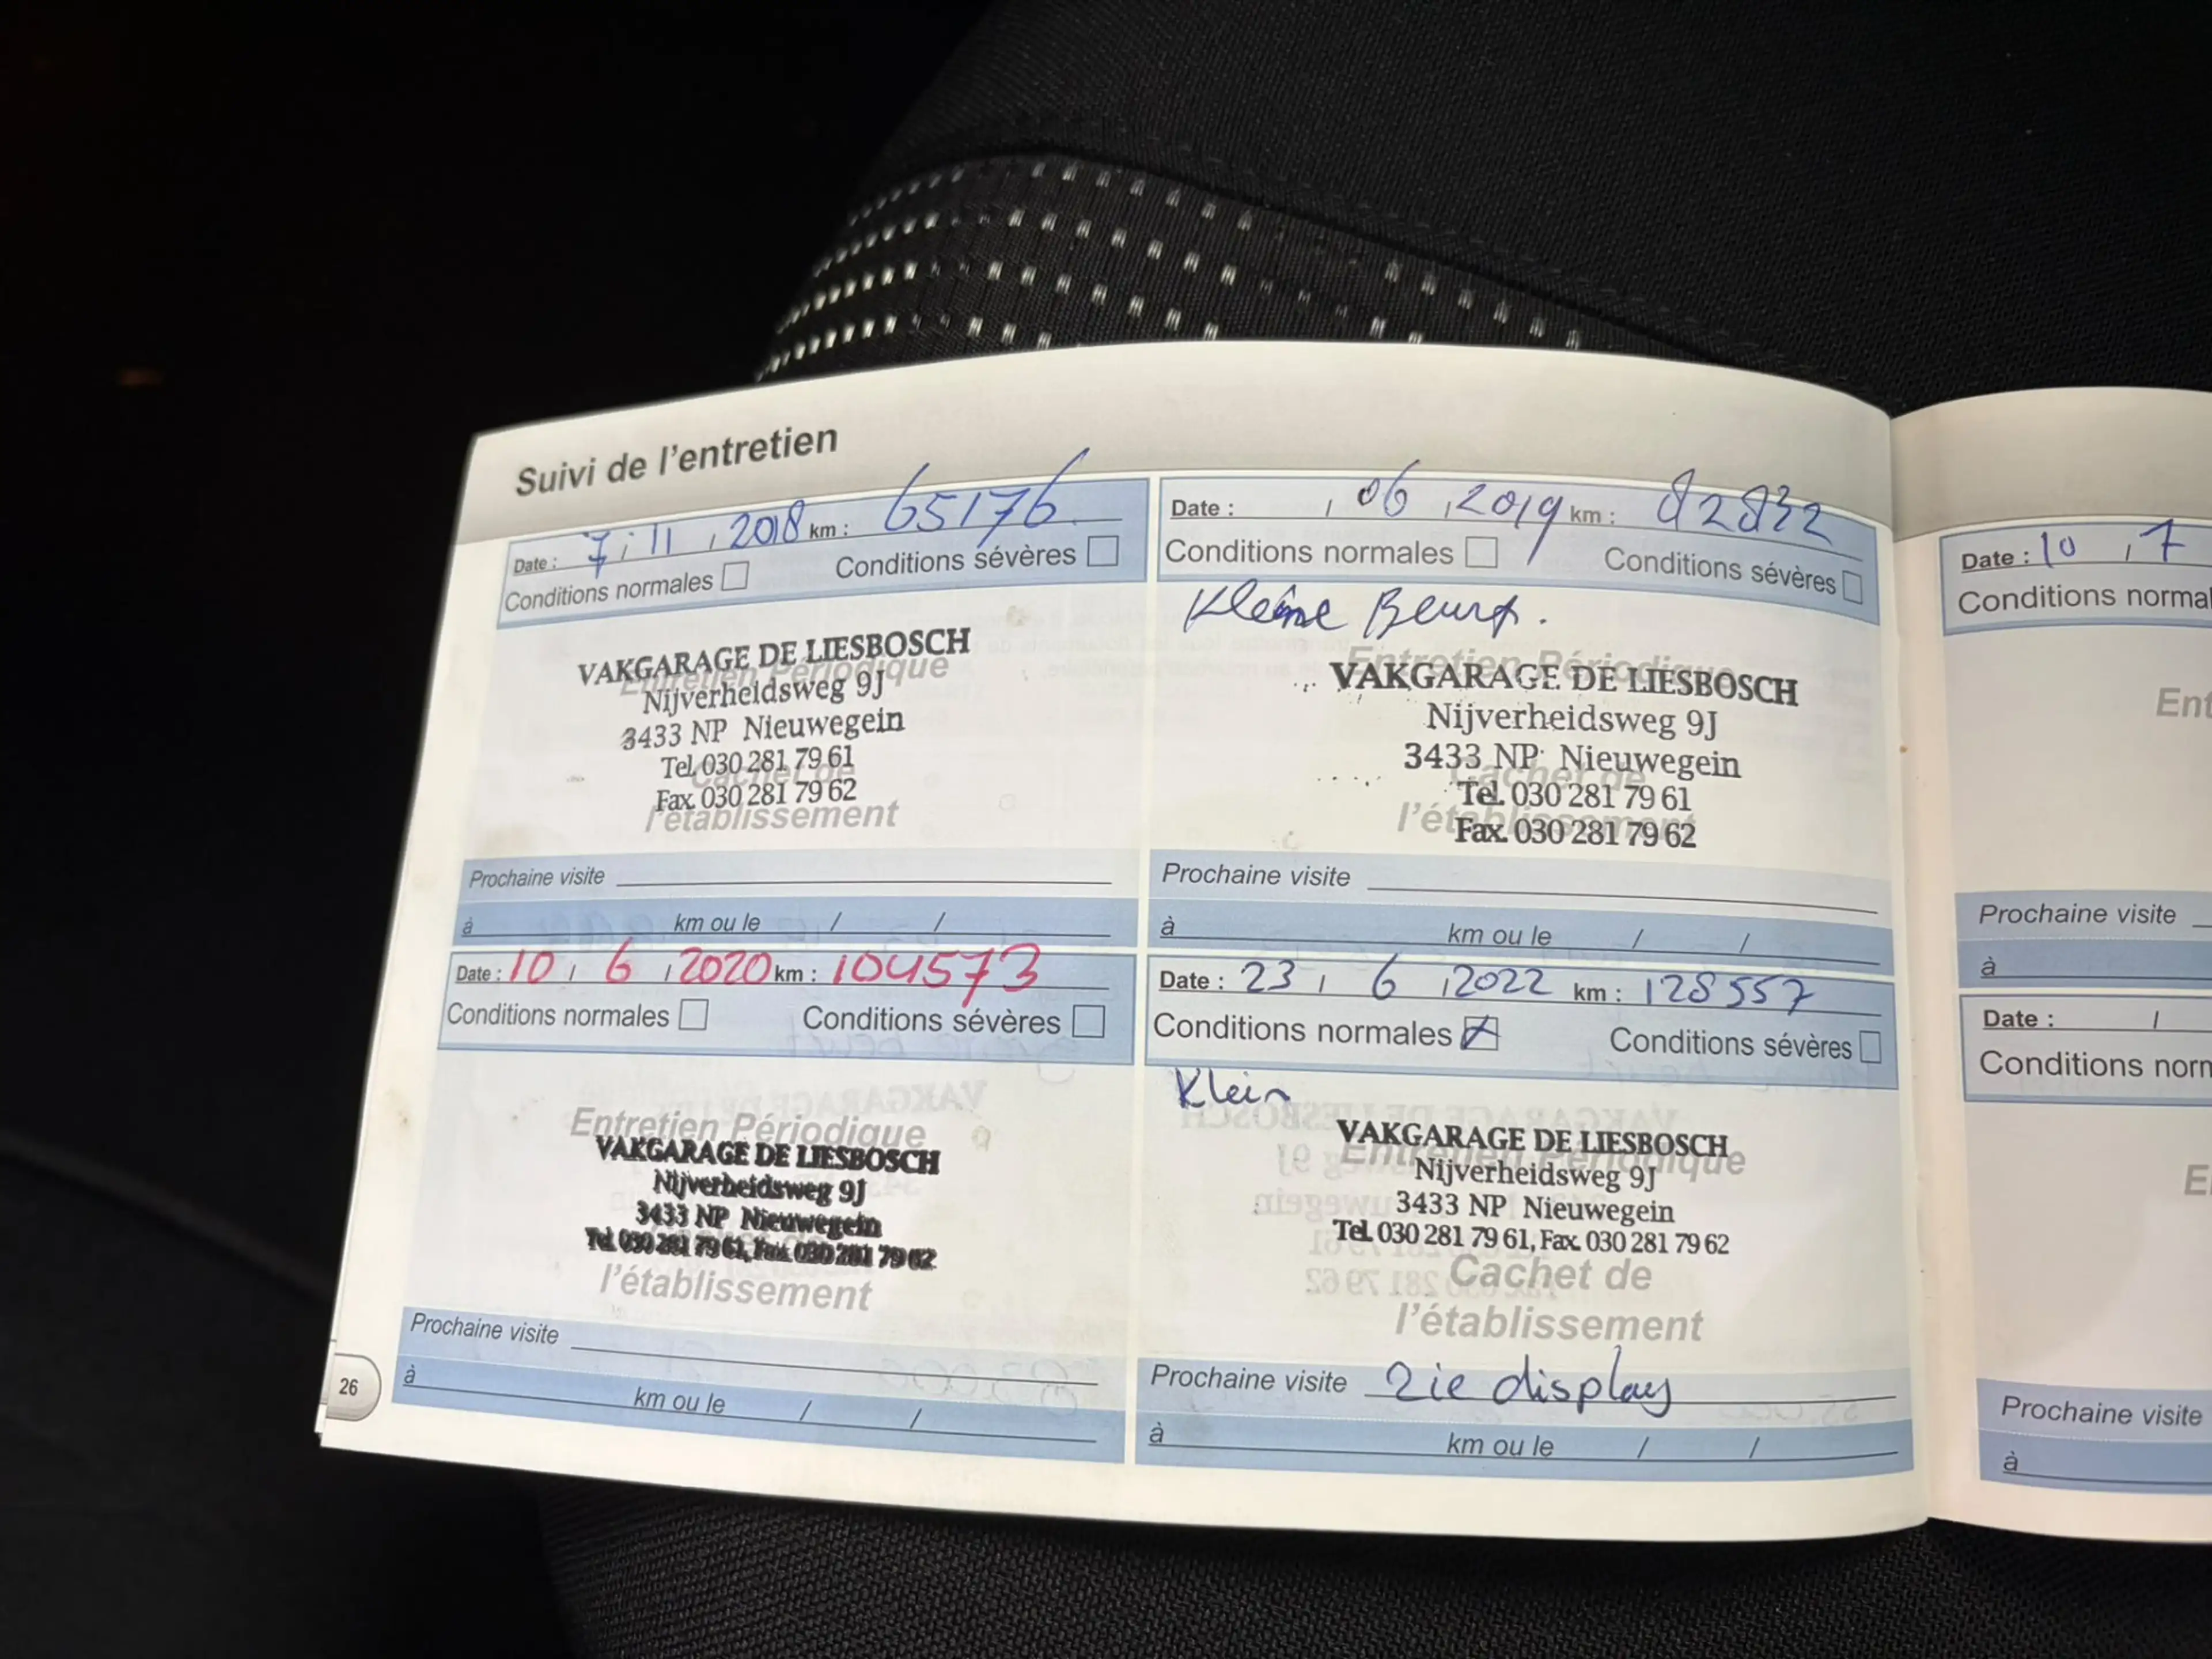 Suivi de l'entretien
Date : 7 / 11 / 2018 km : 65176
Conditions normales Conditions sévères
VAKGARAGE DE LIESBOSCH
Entretien Périodique
Nijverheidsweg 9J
3433 NP Nieuwegein
Tel. 030 281 79 61
Cachet de
Fax. 030 281 79 62
l'établissement
Prochaine visite
à km ou le / /
Date : / 06 / 2019 km : 82832
Conditions normales Conditions sévères
Kleine Beurt.
Entretien Périodique
VAKGARAGE DE LIESBOSCH
Nijverheidsweg 9J
3433 NP Nieuwegein
Cachet de
Tel. 030 281 79 61
l'établissement
Fax. 030 281 79 62
Prochaine visite
à km ou le / /
Date : 10 / 6 / 2020 km : 104573
Conditions normales Conditions sévères
Entretien Périodique
VAKGARAGE DE LIESBOSCH
Nijverheidsweg 9J
3433 NP Nieuwegein
Tel. 030 281 79 61, Fax. 030 281 79 62
l'établissement
Prochaine visite
à km ou le / /
Date : 23 / 6 / 2022 km : 128557
Conditions normales Conditions sévères
Klein
VAKGARAGE DE LIESBOSCH
Entretien Périodique
Nijverheidsweg 9J
3433 NP Nieuwegein
Tel. 030 281 79 61, Fax. 030 281 79 62
Cachet de
l'établissement
Prochaine visite zie display
à km ou le / /
26
Date : 10 / 7
Conditions normal
Ent
Prochaine visite
à
Date : /
Conditions norm
E
Prochaine visite
à